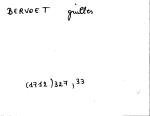 BERVOET guilles
(1712)327, 33